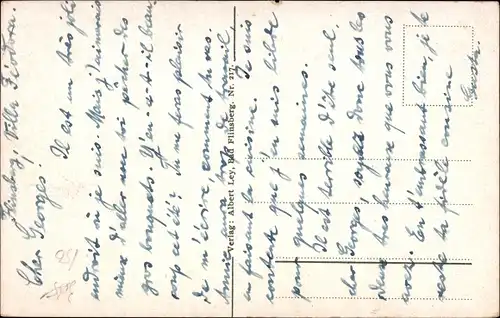 Flinsberg, Villa Fiodora.
Cher Georges!
Il est un très joli
endroit où je suis. Mais j'aimerais
mieux d'aller avec toi pêcher des
gros bouquets. Y en-a-t-il beau-
coup cet été? Tu me feras plaisir
de m'écrire comment tu vas.
Annie aura trop de travail
en faisant la cuisine. Je suis
contente que j'en suis libre
pour quelques semaines.
Il est terrible d'être seul.
cher Georges, soyez donc tous les
deux très heureux que vous vous
avez. En t'embrassant bien, je te
reste ta fidèle cousine
Verlag: Albert Ley, Bad Flinsberg. Nr. 217.